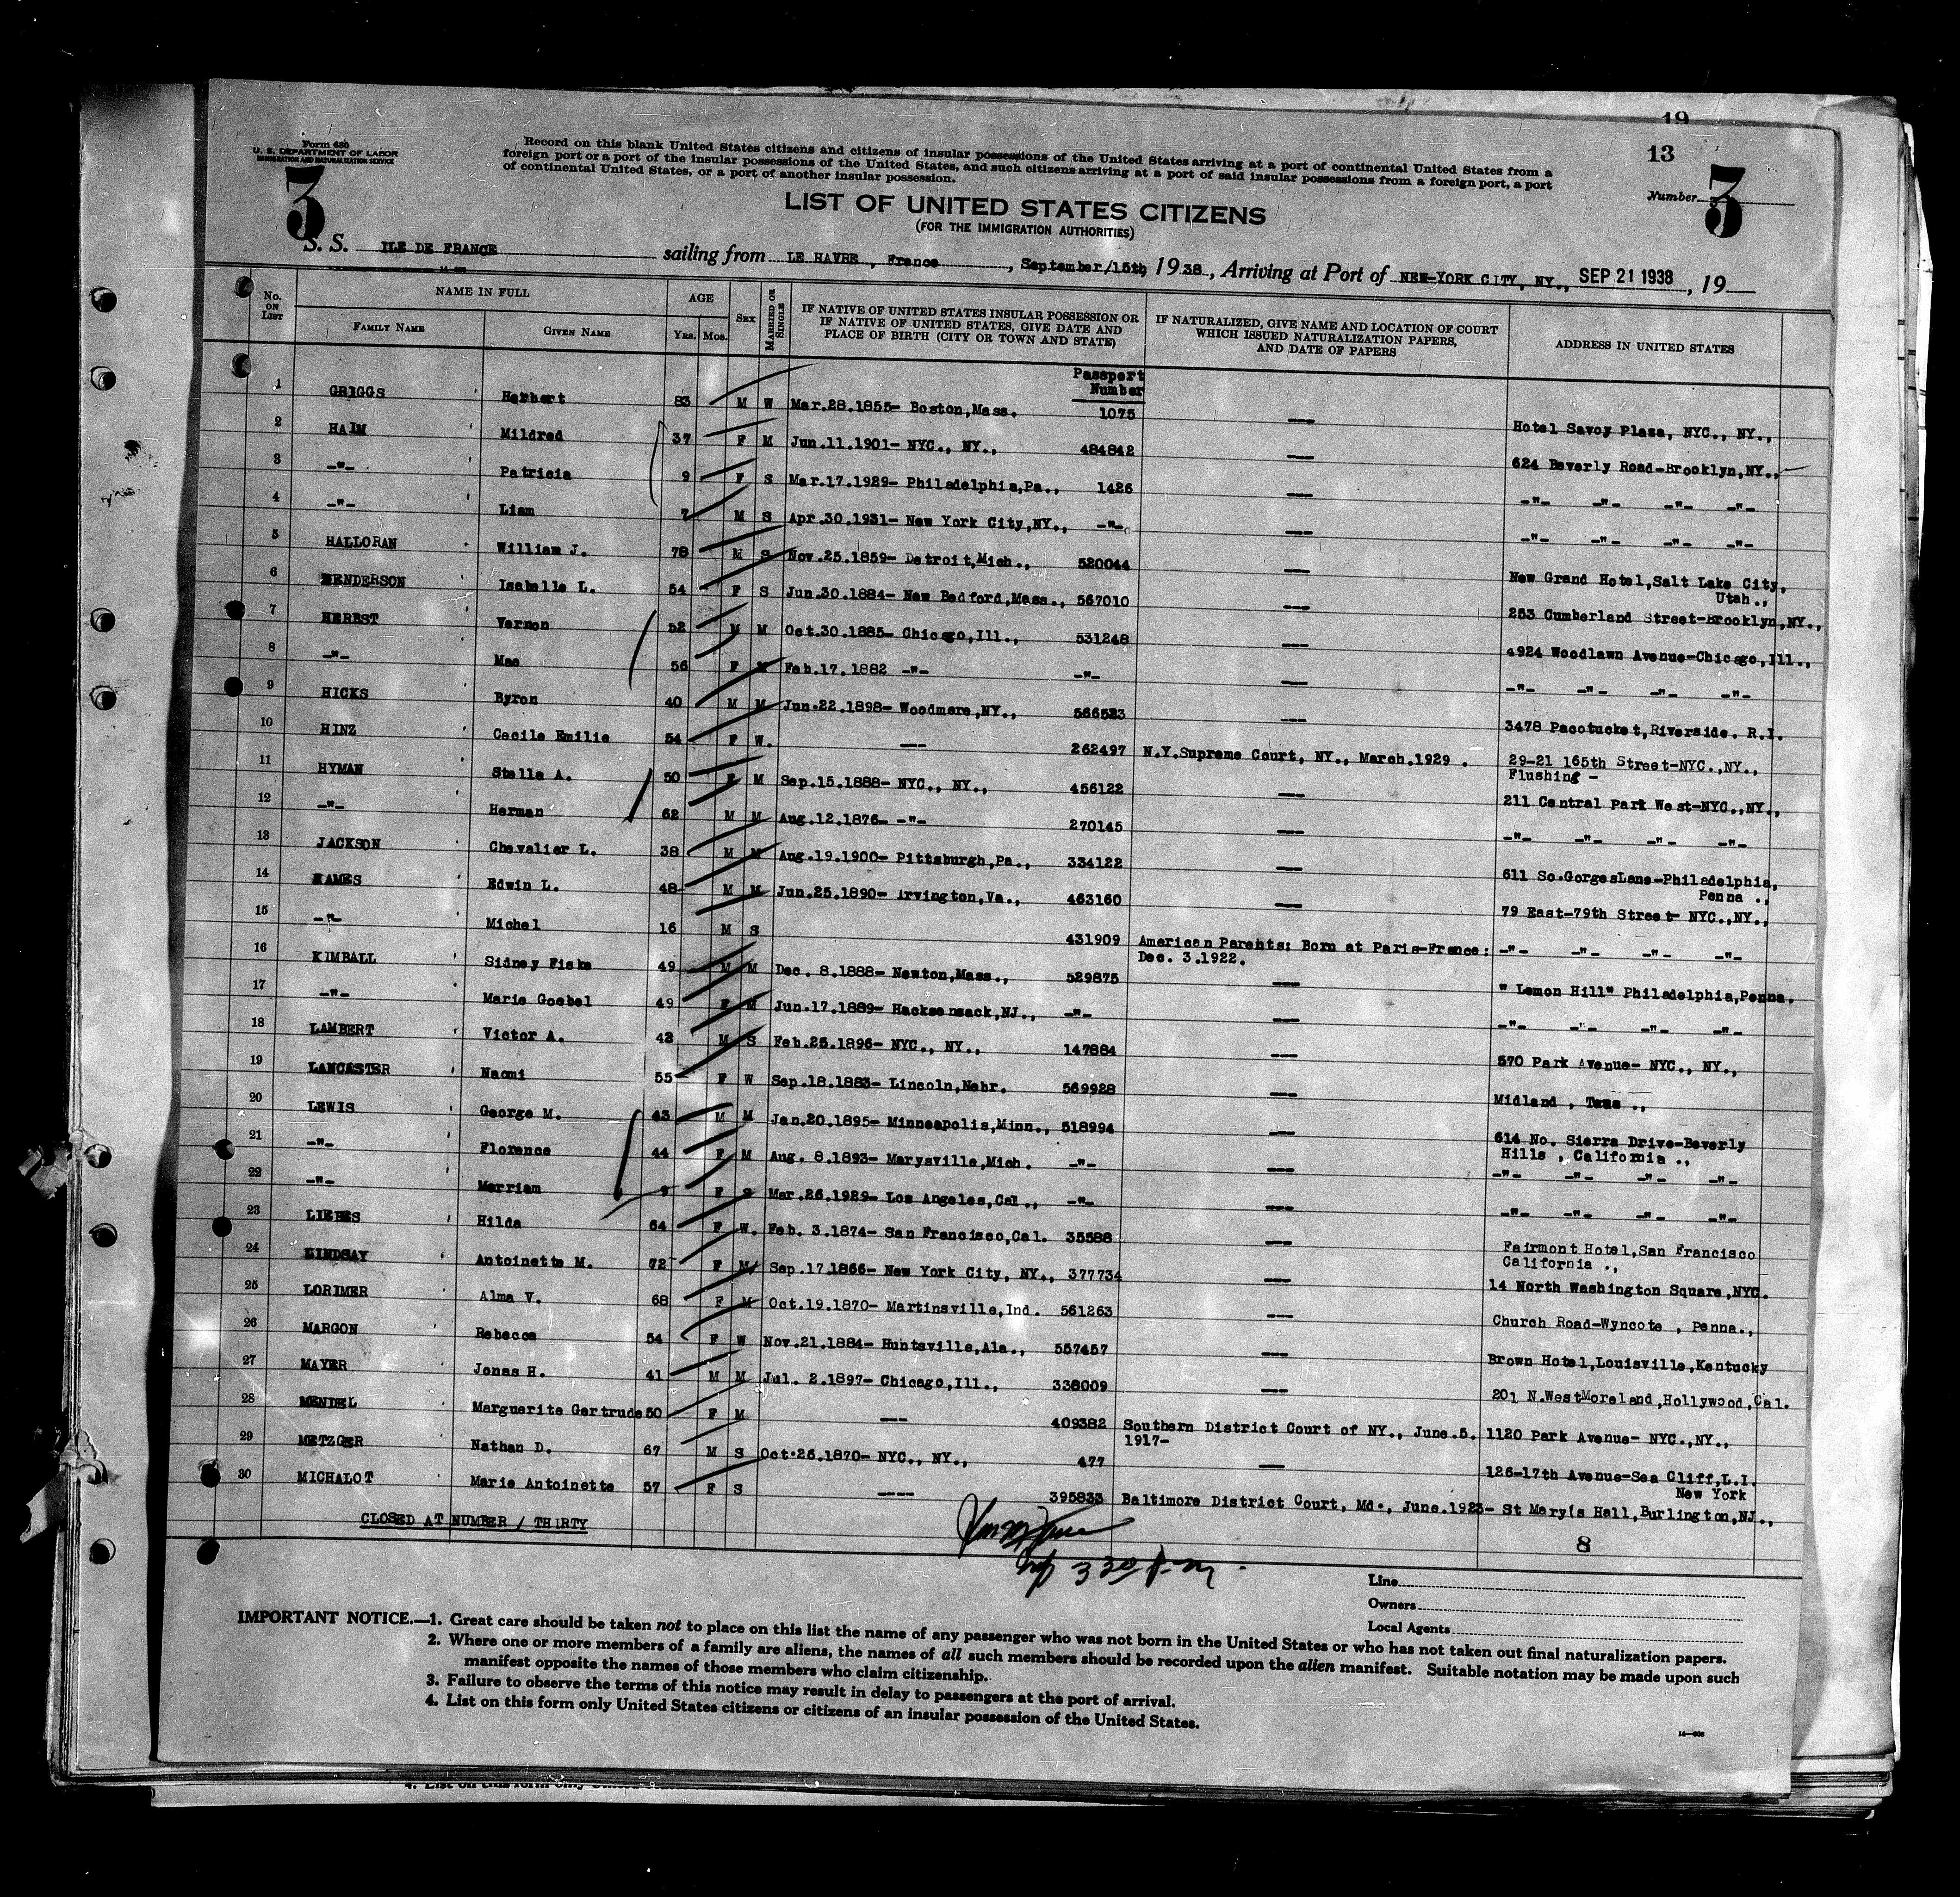 19
13
Form 630
U. S. DEPARTMENT OF LABOR
IMMIGRATION AND NATURALIZATION SERVICE
3
Record on this blank United States citizens and citizens of insular possessions of the United States arriving at a port of continental United States from a
foreign port or a port of the insular possessions of the United States, and such citizens arriving at a port of said insular possessions from a foreign port, a port
of continental United States, or a port of another insular possession.
Number 3
LIST OF UNITED STATES CITIZENS
(FOR THE IMMIGRATION AUTHORITIES)
S. S. ILE DE FRANCE sailing from LE HAVRE, France, September/15th 1938, Arriving at Port of NEW-YORK CITY, NY., SEP 21 1938, 19
No. ON LIST NAME IN FULL FAMILY NAME GIVEN NAME AGE Yrs. Mos. SEX MARRIED OR SINGLE IF NATIVE OF UNITED STATES INSULAR POSSESSION OR IF NATIVE OF UNITED STATES, GIVE DATE AND PLACE OF BIRTH (CITY OR TOWN AND STATE) IF NATURALIZED, GIVE NAME AND LOCATION OF COURT WHICH ISSUED NATURALIZATION PAPERS, AND DATE OF PAPERS ADDRESS IN UNITED STATES
Passport
Number
1 GRIGGS Herbert 83 M W Mar.28.1855- Boston,Mass. 1075 — Hotel Savoy Plaza, NYC., NY.,
2 HAIM Mildred 37 F M Jun.11.1901- NYC., NY., 484842 — 624 Beverly Road-Brooklyn,NY.,
3 -"- Patricia 9 F S Mar.17.1929- Philadelphia,Pa., 1426 — -"- -"- -"- -"-
4 -"- Liam 7 M S Apr.30.1931- New York City,NY., -"- — -"- -"- -"- -"-
5 HALLORAN William J. 78 M S Nov.25.1859- Detroit,Mich., 520044 — New Grand Hotel,Salt Lake City,
Utah.,
6 HENDERSON Isabelle L. 54 F S Jun.30.1884- New Bedford,Mass., 567010 — 253 Cumberland Street-Brooklyn,NY.,
7 HERBST Vernon 52 M M Oct.30.1885- Chicago,Ill., 531248 — 4924 Woodlawn Avenue-Chicago,Ill.,
8 -"- Mae 56 F M Feb.17.1882 -"- -"- — -"- -"- -"- -"-
9 HICKS Byron 40 M M Jun.22.1898- Woodmere,NY., 566523 — 3478 Pacotucket,Riverside. R.I.
10 HINZ Cecile Emilie 54 F W. — 262497 N.Y.Supreme Court, NY., March.1929 . 29-21 165th Street-NYC.,NY.,
Flushing -
11 HYMAN Stella A. 50 F M Sep.15.1888- NYC., NY., 456122 — 211 Central Park West-NYC.,NY.,
12 -"- Herman 62 M M Aug.12.1876- -"- 270145 — -"- -"- -"- -"-
13 JACKSON Chevalier L. 38 M M Aug.19.1900- Pittsburgh,Pa., 334122 — 611 So.GorgesLane-Philadelphia,
Penna .,
14 KAMES Edwin L. 48 M M Jun.25.1890- Irvington,Va., 463160 — 79 East-79th Street- NYC.,NY.,
15 -"- Michel 16 M S 431909 American Parents: Born at Paris-France: -"- -"- -"- -"-
Dec. 3.1922.
16 KIMBALL Sidney Fiske 49 M M Dec. 8.1888- Newton,Mass., 529875 — " Lemon Hill" Philadelphia,Penna.
17 -"- Marie Goebel 49 F M Jun.17.1889- Hackensack,NJ., -"- — -"- -"- -"- -"-
18 LAMBERT Victor A. 42 M S Feb.25.1896- NYC., NY., 147884 — 570 Park Avenue- NYC., NY.,
19 LANCASTER Naomi 55 F W Sep.18.1883- Lincoln,Nebr. 569928 — Midland , Texas .,
20 LEWIS George M. 43 M M Jan.20.1895- Minneapolis,Minn., 518994 — 614 No. Sierra Drive-Beverly
Hills , California .,
21 -"- Florence 44 F M Aug. 8.1893- Marysville,Mich. -"- — -"- -"- -"- -"-
22 -"- Merriam 9 F S Mar.26.1929- Los Angeles,Cal., -"- — -"- -"- -"- -"-
23 LIEBES Hilda 64 F W. Feb. 3.1874- San Francisco,Cal. 35588 — Fairmont Hotel,San Francisco
California .,
24 LINDSAY Antoinette M. 72 F M Sep.17.1866- New York City, NY., 377734 — 14 North Washington Square,NYC.
25 LORIMER Alma V. 68 F M Oct.19.1870- Martinsville,Ind. 561263 — Church Road-Wyncote , Penna.,
26 MARGON Rebecca 54 F W Nov.21.1884- Huntsville,Ala., 557457 — Brown Hotel,Louisville,Kentucky
27 MAYER Jonas H. 41 M M Jul. 2.1897- Chicago,Ill., 338009 — 201 N.WestMoreland,Hollywood,Cal.
28 MENDEL Marguerite Gertrude 50 F M — 409382 Southern District Court of NY., June.5. 1120 Park Avenue- NYC.,NY.,
1917-
29 METZGER Nathan D. 67 M S Oct.26.1870- NYC., NY., 477 — 126-17th Avenue-Sea Cliff,L.I.
New York
30 MICHALOT Marie Antoinette 57 F S — 395833 Baltimore District Court, Md., June.1923- St Mary's Hall,Burlington,NJ.,
CLOSED AT NUMBER / THIRTY
8
3 30 P.M.
Line
Owners
Local Agents
IMPORTANT NOTICE.—1. Great care should be taken not to place on this list the name of any passenger who was not born in the United States or who has not taken out final naturalization papers.
2. Where one or more members of a family are aliens, the names of all such members should be recorded upon the alien manifest. Suitable notation may be made upon such
manifest opposite the names of those members who claim citizenship.
3. Failure to observe the terms of this notice may result in delay to passengers at the port of arrival.
4. List on this form only United States citizens or citizens of an insular possession of the United States.